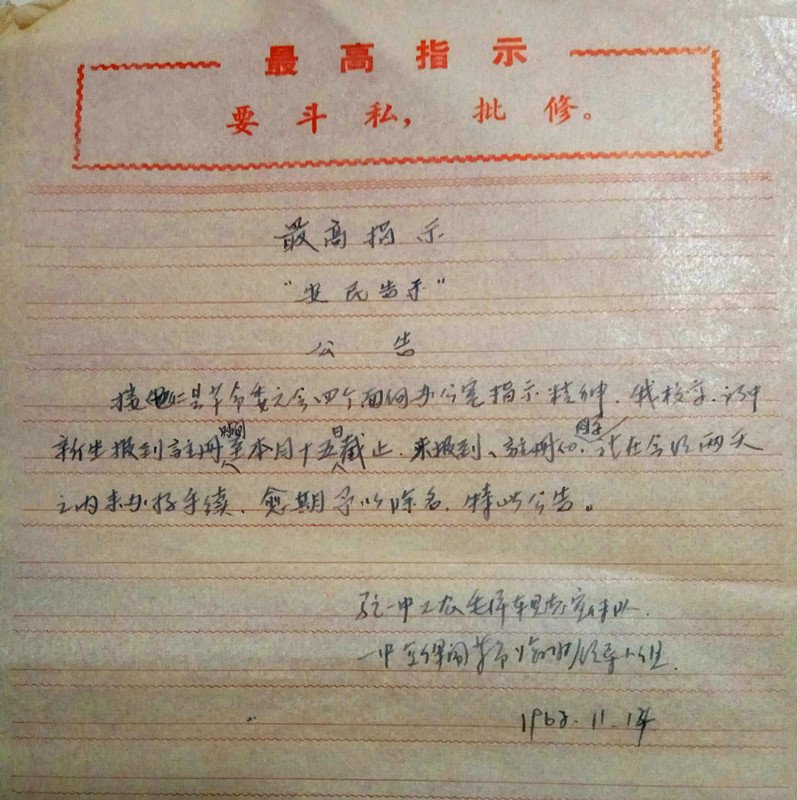 最高指示
要斗私，批修。
最高指示
“安民告示”
公告
接 县革命委员会四个面向办公室指示精神，我校高、初中
新生报到註册时间至本月十五日截止，未报到、註册的同学，请在今后两天
之内来办好手续，愈期予以除名，特此公告。
驻一中工农毛泽东思想宣传队
一中 领导小组
11.